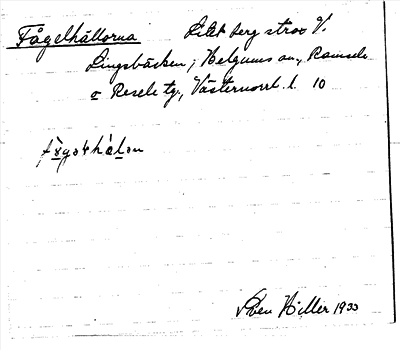 Fågelhällorna Litet berg strax V.
Lingsbäcken, Helgums sn., Ramsele
o Resele tg., Västernorrl. l. 10
Sven Hiller 1933